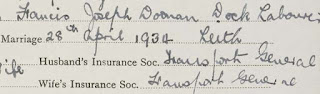 Francis Joseph Doonan Dock Labourer
Marriage 28th April 1934 Leith
Wife Husband's Insurance Soc. Transport General
Wife's Insurance Soc. Transport General